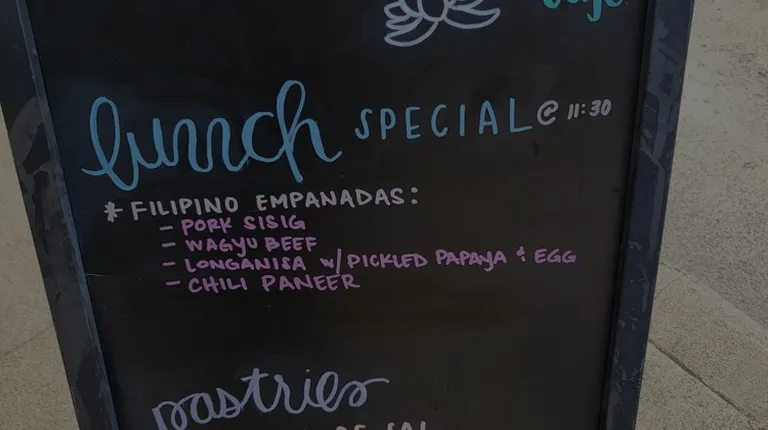 lunch SPECIAL @ 11:30
* FILIPINO EMPANADAS:
- PORK SISIG
- WAGYU BEEF
- LONGANISA w/ PICKLED PAPAYA & EGG
- CHILI PANEER
pastries
DE SAL